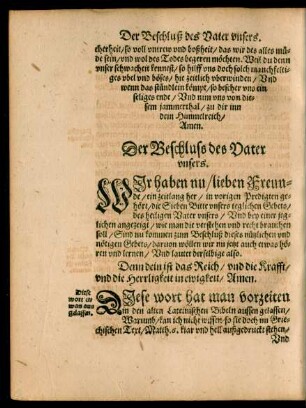 Der Beschluß des Vater vnsers.
cherheit/ so voll vnrew vnd boßheit/ das wir des alles mü
de sein/ vnd wol des Todes begeren möchten. Weil du denn
vnser schwachen kennest/ so hilff vns doch solch manchfelti-
ges vbel vnd böses/ hie zeitlich vberwinden/ Vnd
wenn das stündlein kömpt/ so bescher vns ein
seliges ende/ Vnd nim vns von die-
sem jammerthal/ zu dir inn
dein Himmelreich/
Amen.
Der Beschluß des Vater
vnsers.
WIr haben nu/ lieben Freun-
de/ ein zeitlang her/ in vorigen Predigten ge-
hört/ die Sieben Bitte vnsers teglichen Gebets/
des heiligen Vater vnsers/ Vnd bey einer jeg-
lichen angezeigt/ wie man die verstehen vnd recht brauchen
soll/ Sind nu kommen zum Beschluß dieses nützlichen vnd
nötigen Gebets/ dauon wöllen wir nu jetzt auch etwas hö-
ren vnd lernen/ Vnd lautet derselbige also.
Denn dein ist das Reich/ vnd die Krafft/
vnd die Herrligkeit in ewigkeit/ Amen.
Diese
wort et
wan aus
gelassen.
DIese wort hat man vorzeiten
in den alten Lateinischen Bibeln aussen gelassen/
Warumb/ kan ich nicht wissen/ so sie doch im Grie-
chischen Text/ Matth. 6. klar vnd hell außgedruckt stehen/
Vnd